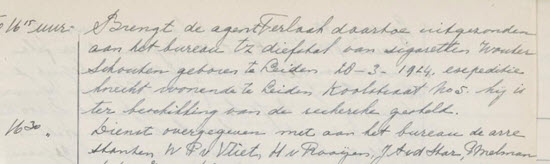 16 15 uur. Brengt de agent Verlaat daartoe uitgezonden
aan het bureau tz diefstal van sigaretten Wouter
Schouten geboren te Leiden 28-3-1924, expeditie
knecht wonende te Leiden Koolstraat No 5. hij is
ter beschikking van de recherche gesteld.
16 30. Dienst overgegeven met aan het bureau de arre
stanten W P v Vliet, H v Rooijen, J A v d Star,